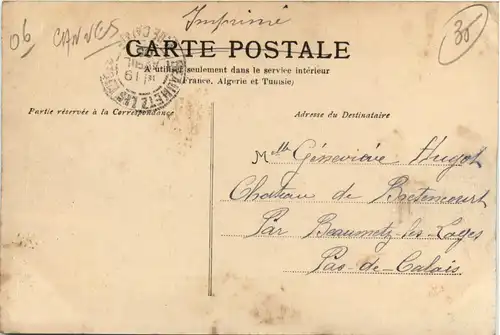 Imprimé
06 CANNES
35
CARTE POSTALE
A utiliser seulement dans le service intérieur
(France, Algerie et Tunisie)
Partie réservée à la Correspondance
Adresse du Destinataire
Mlle Géneviève Hugot
Chateau de Bretencourt
Par Beaumetz-les-Loges
Pas-de-Calais